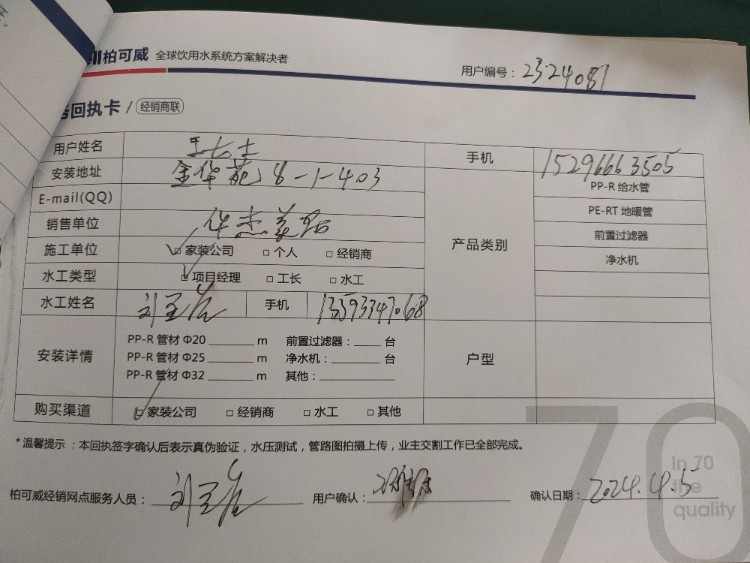 柏可威 全球饮用水系统方案解决者
用户编号：2324081
回执卡 / 经销商联
用户姓名
手机 15296663505
安装地址 金华苑 8-1-403
E-mail(QQ)
销售单位
产品类别
PP-R 给水管
PE-RT 地暖管
前置过滤器
净水机
施工单位 ☑ 家装公司 □ 个人 □ 经销商
水工类型 ☑ 项目经理 □ 工长 □ 水工
水工姓名 手机 13593347068
安装详情
PP-R 管材 Φ20 ______ m 前置过滤器：____ 台
PP-R 管材 Φ25 ______ m 净水机：____ 台
PP-R 管材 Φ32 ______ m 其他：______
户型
购买渠道 ☑ 家装公司 □ 经销商 □ 水工 □ 其他
*温馨提示：本回执签字确认后表示真伪验证，水压测试，管路图拍摄上传，业主交割工作已全部完成。
柏可威经销网点服务人员：
用户确认：
确认日期：2024.4.5
70
In 70
the
quality